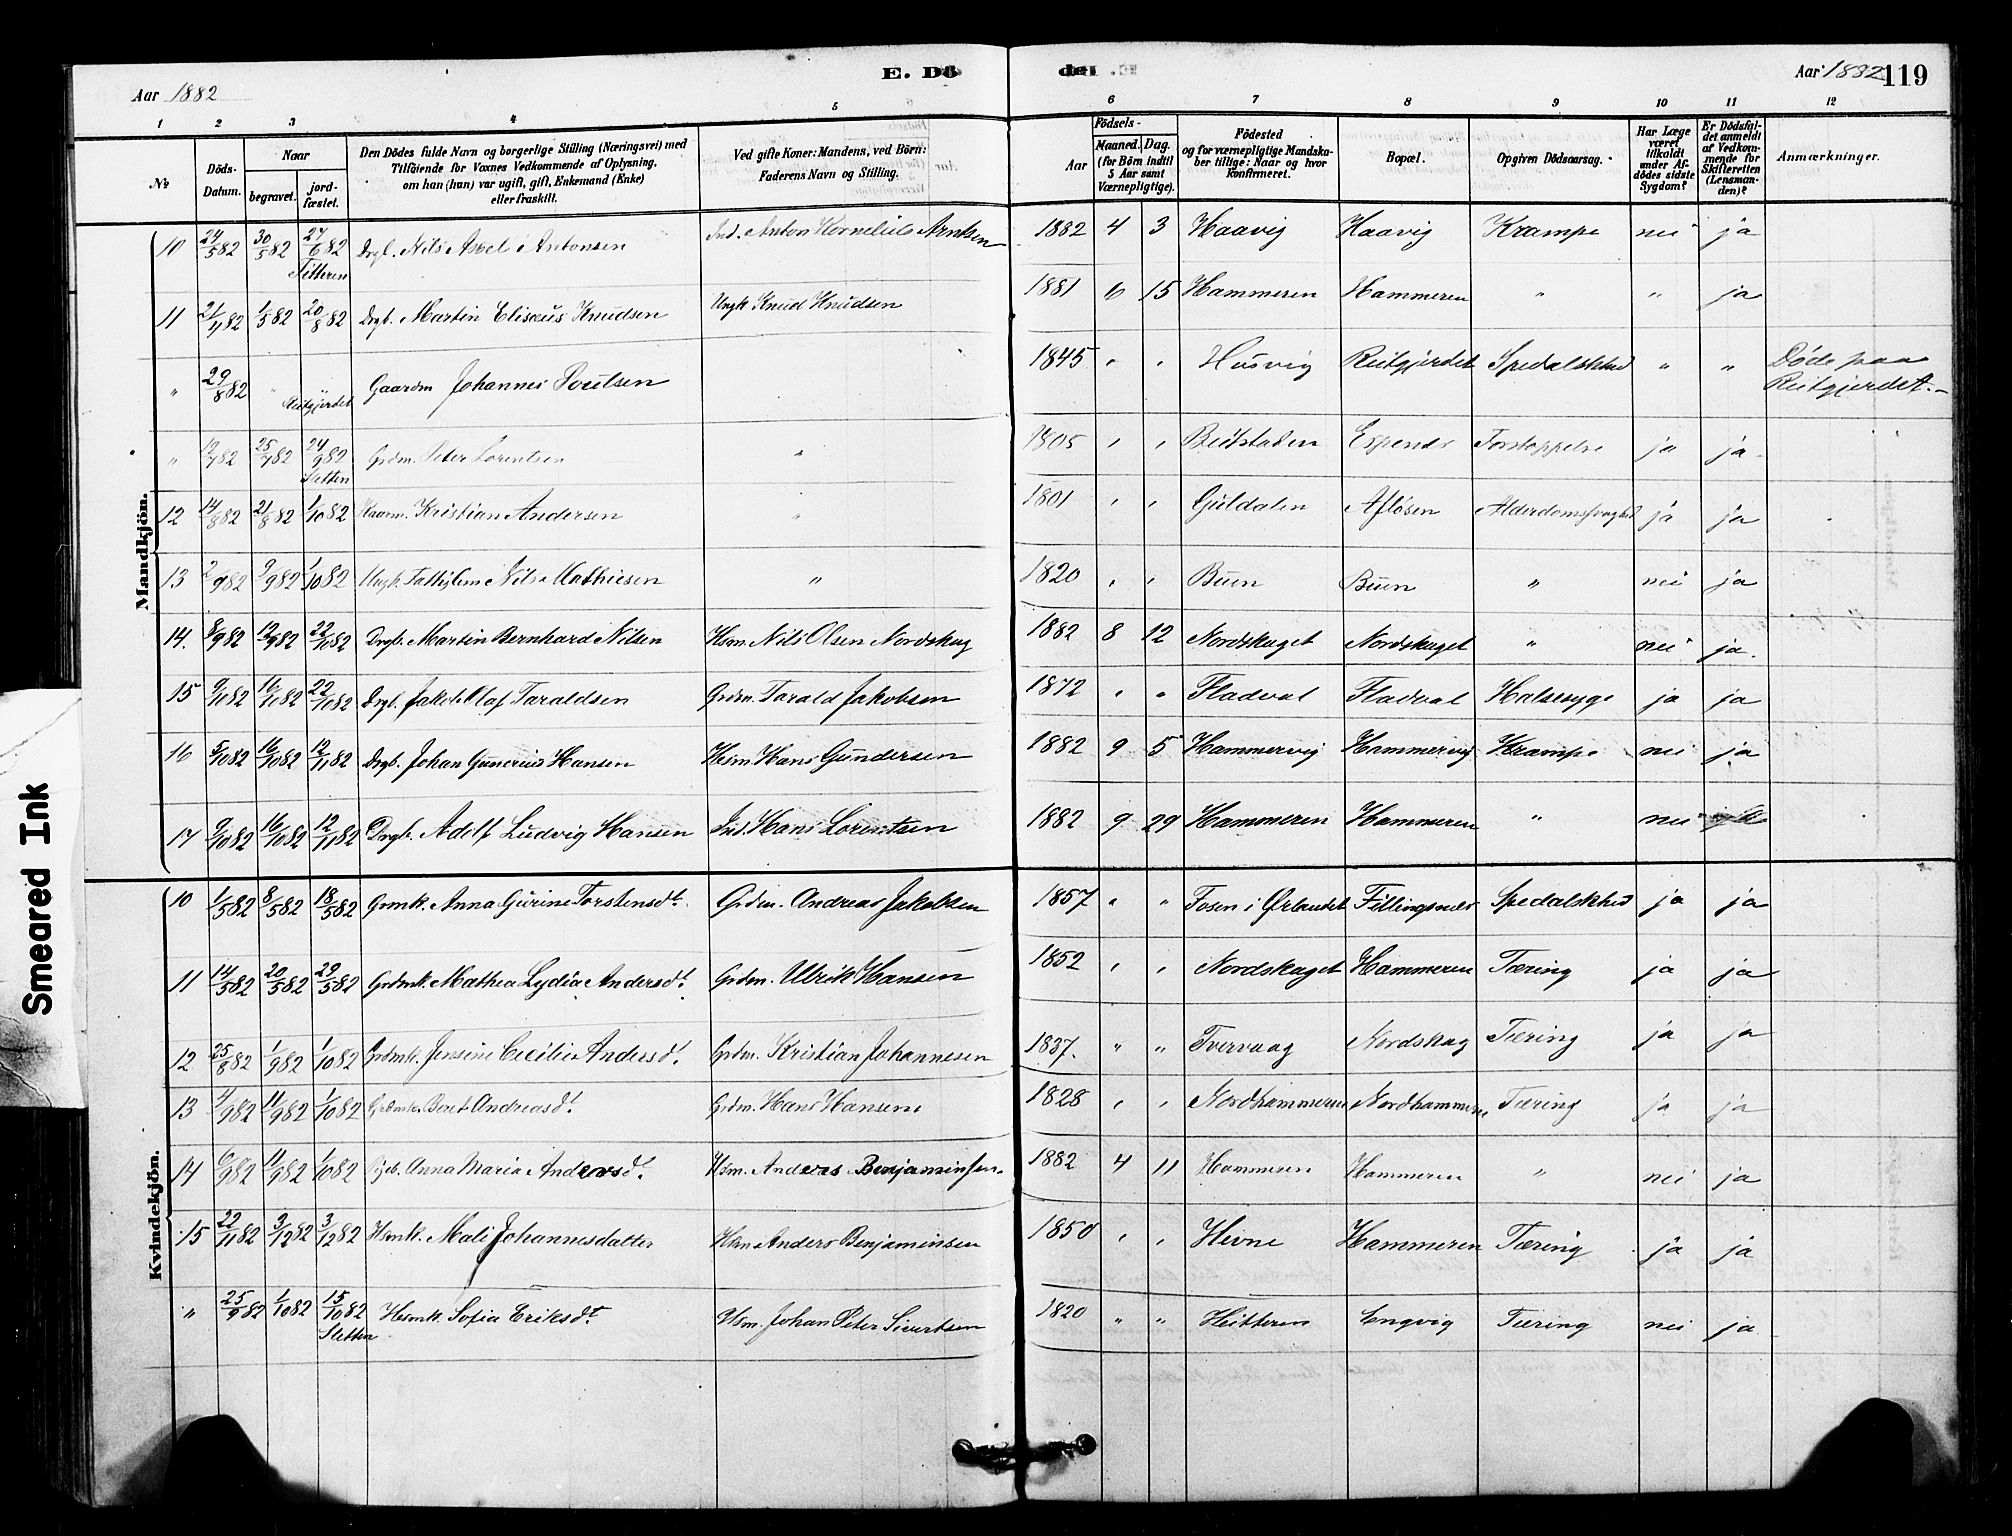 E. Dö
den .E
Aar 1882
Aar 1882 119
1 2 3 4 5 6 7 8 9 10 11 12
№
Döds-Datum.
Naar
begravet. jordfæstet.
Den Dödes fulde Navn og borgerlige Stilling (Næringsvei) med
Tilföiende for Voxnes Vedkommende af Oplysning,
om han (hun) var ugift, gift, Enkemand (Enke)
eller fraskilt.
Ved gifte Koner: Mandens, ved Börn:
Faderens Navn og Stilling.
Aar
Födsels-
Maaned. Dag.
(for Börn indtil
5 Aar samt
Værnepligtige).
Födested
og for værnepligtige Mandska-
ber tillige: Naar og hvor
konfirmeret.
Bopæl.
Opgiven Dödsaarsag.
Har Læge
været
tilkaldt
under Af-
dødes sidste
Sygdom?
Er Dödsfal-
det anmeldt
af Vedkom-
mende for
Skifteretten
(Lensman-
den)?
Anmærkninger.
Mandkjön.
10 24/5 82 30/5 82 27/6 82 Titteren Drgb. Nils Axel Antonsen Ind. Anton Kornelius Arntsen 1882 4 3 Haavig Haavig Krampe nei ja
11 21/4 82 1/5 82 20/8 82 Drgb. Martin Elisæus Knudsen Ungk Knud Knudsen 1881 6 15 Hammeren Hammeren " " ja
" 29/8 82 " " Reitgjerdet Gaardm Johannes Poulsen 1845 " " Husvig Reitgjerdet Spedalskhed " " Døde paa
Reitgjerdet.-
" 19/7 82 25/7 82 24/9 82 Sletten Grdm. Peter Lorentsen " 1805 " " Beitstaden Espenes Forstoppelse ja ja
12 14/8 82 21/8 82 1/10 82 Kaarm. Kristian Andersen " 1801 " " Guldalen Afløsen Alderdomssvaghed ja ja
13 2/9 82 9/9 82 1/10 82 Ungk. Fattiglem Nils Mathiesen " 1820 " " Buen Buen " nei ja
14. 8/9 82 12/9 82 22/10 82 Drgb. Martin Bernhard Nilsen Hsm. Nils Olsen Nordskag 1882 8 12 Nordskaget Nordskaget " nei ja.
15 9/10 82 16/10 82 22/10 82 Drgb. Jakob Olaf Taraldsen Grdm. Tarald Jakobsen 1872 " " Fladval Fladval Halssyge ja ja
16 5/10 82 16/10 82 12/11 82 Drgb. Johan Gunerius Hansen Hsm Hans Gundersen 1882 9 5 Hammervig Hammervig Krampe nei ja
17 9/10 82 16/10 82 12/11 82 Drgb. Adolf Ludvig Hansen Ind Hans Lorentsen 1882 9 29 Hammeren Hammeren " nei
Kvindekjön.
10 1/5 82 8/5 82 18/5 82 Grmk. Anna Gurine Torstensdt. Grdm. Andreas Jakobsen 1857 " " Fosen i Ørlandet Fillingsnæs Spedalskhed ja ja
11 14/5 82 20/5 82 29/5 82 Grdmk. Mathea Lydia Andersdt. Grdm. Ulrik Hansen 1852 " " Nordskaget Hammeren Tæring ja ja
12 25/8 82 1/9 82 1/10 82 Grdmk. Jensine Cecilie Andersdt. Grdm. Kristian Johannesen 1837. " " Tvervaag Nordskag Tæring ja ja
13 4/9 82 11/9 82 1/10 82 Grdmk. Beret Andreasdt. Grdm. Hans Hansen 1828 " " Nordhammeren Nordhammeren Tæring ja ja
14 6/9 82 11/9 82 1/10 82 Pgeb. Anna Maria Andersdt. Hsm. Anders Benjaminsen. 1882 4 11 Hammeren Hammeren " nei ja
15 22/11 82 3/12 82 3/12 82 Hsmk. Mali Johannesdatter Hsm Anders Benjaminsen 1850 " " Hevne Hammeren Tæring ja ja
" 25/9 82 1/10 82 15/10 82 Sletten Hsmk. Sofia Eriksdt. Hsm. Johan Peter Sivertsen 1820 " " Hitteren Engvig Tæring nei ja
Smeared Ink